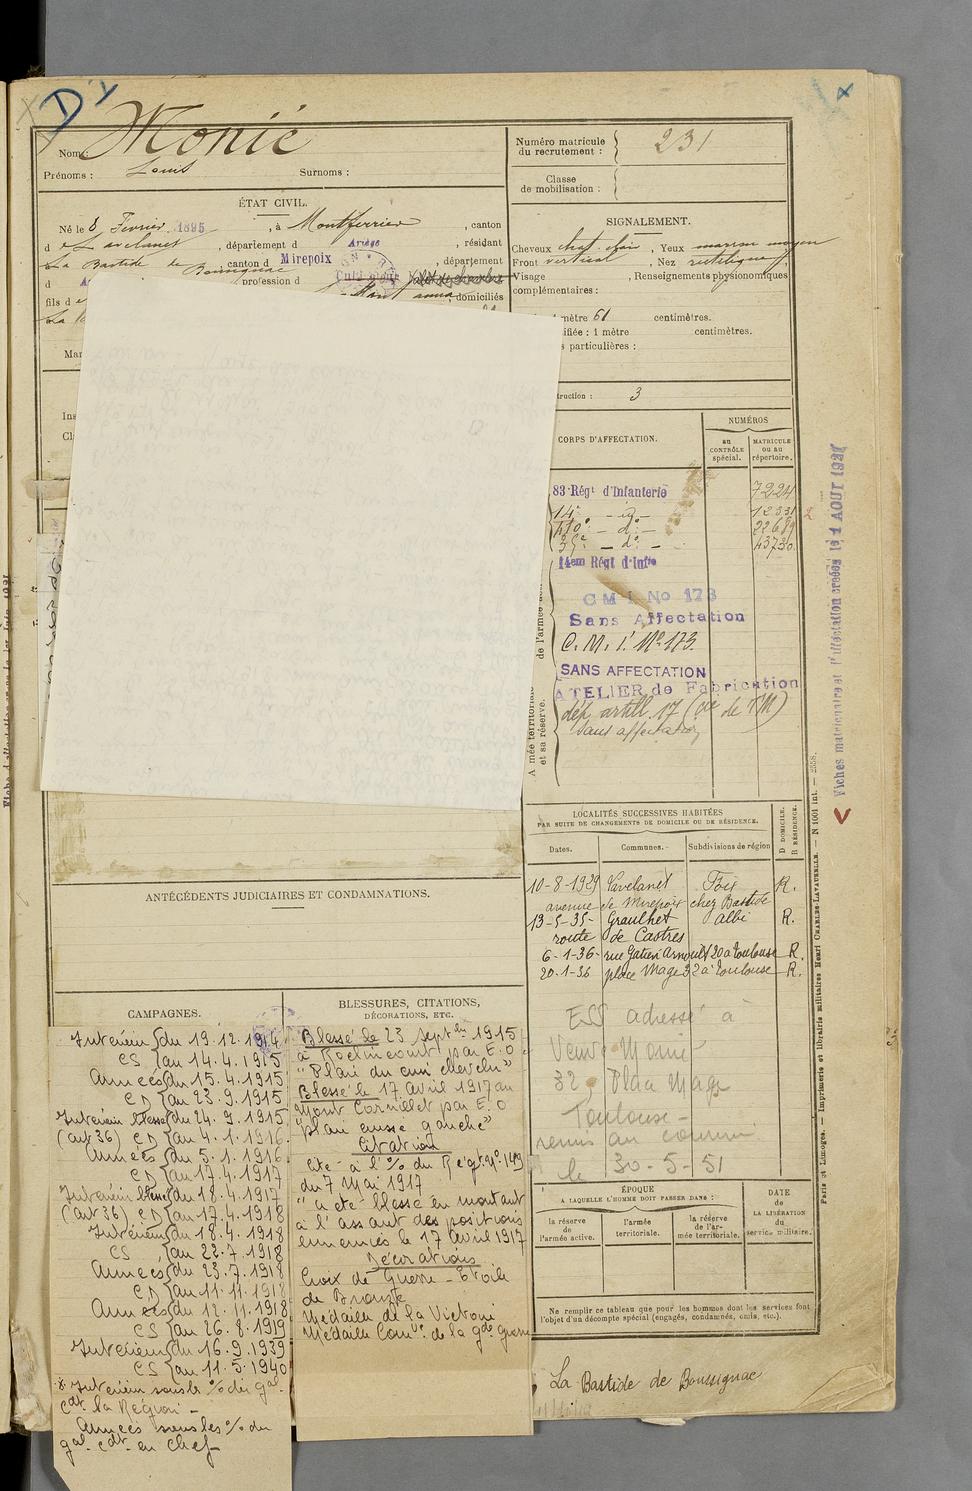 D
Monié
Nom :
Prénoms : Louis Surnoms :
Numéro matricule
du recrutement : 231
Classe
de mobilisation :
ÉTAT CIVIL.
Né le 8 Février 1895, à Montferrier, canton
d e Lavelanet, département d Ariège, résidant
La Bastide de Bousignac, canton d Mirepoix, département
d profession d
fils d domiciliés
SIGNALEMENT.
Cheveux chat. clair, Yeux marron moyen
Front vertical, Nez rectiligne,
Visage , Renseignements physionomiques
complémentaires :
mètre 61 centimètres.
ifiée : 1 mètre centimètres.
s particulières :
truction : 3
CORPS D'AFFECTATION.
NUMÉROS
au
CONTRÔLE
spécial.
MATRICULE
ou au
répertoire.
83 Régt d'Infanterie 7224
14e — d° — 12331
— d° — 22689
— d° — 43730
14em Régt d'Infie
C M I No 173
Sans Affectation
C. M. I. N° 173.
SANS AFFECTATION
ATELIER de Fabrication
dép. artill. 17
Sans affectation
de l'armée
A mée territoriale
et sa réserve.
Fiches matricule et d'affectation créées le 1 AOUT 1927
LOCALITÉS SUCCESSIVES HABITÉES
PAR SUITE DE CHANGEMENTS DE DOMICILE OU DE RÉSIDENCE.
Dates. Communes. Subdivisions de région
D DOMICILE.
R RÉSIDENCE.
10-8-1929 Lavelanet Foix R.
avenue de Mirepoix chez Bastide
13-5-35- Graulhet Albi R.
route de Castres
6-1-36- rue Gatien Arnoult 20 à Toulouse R.
20-1-36 place Mage 32 à Toulouse R.
ESS adressé à
Veuve Monié
32, Place Mage
Toulouse -
remis au courrier
le 30-5-51
ANTÉCÉDENTS JUDICIAIRES ET CONDAMNATIONS.
CAMPAGNES.
Intérieur du 19.12.1914
CS au 14.4.1915
Armées du 15.4.1915
CD au 23.9.1915
Intérieur blessé du 24.9.1915
(art 36) CD au 4.1.1916
Armées du 5.1.1916
CD au 17.4.1917
Intérieur blessé du 18.4.1917
(art 36) CD au 17.4.1918
Intérieur du 18.4.1918
CS au 22.7.1918
Armées du 23.7.1918
CD au 11.11.1918
Armées du 12.11.1918
CS au 26.8.1919
Intérieur du 16.9.1939
CS au 11.5.1940
Intérieur sous les % du gal
Cdt la Région -
Armées sous les % du
gal Cdt en Chef
BLESSURES, CITATIONS,
DÉCORATIONS, ETC.
Blessé le 23 Septbre 1915
à Roclincourt par E.O
"Plaie du cuir chevelu"
Blessé le 17 Avril 1917 au
Mont Cornillet par E.O
"plaie cuisse gauche"
Citation
Cité à l'% du Régt N° 149
du 7 Mai 1917
"a été blessé en montant
à l'assaut des positions
ennemies le 17 Avril 1917
Décorations
Croix de Guerre - Etoile
de Bronze
Médaille de la Victoire
Médaille Comve de la gde guerre
ÉPOQUE
A LAQUELLE L'HOMME DOIT PASSER DANS :
la réserve
de
l'armée active.
l'armée
territoriale.
la réserve
de l'ar-
mée territoriale.
DATE
de
LA LIBÉRATION
du
service militaire.
Ne remplir ce tableau que pour les hommes dont les services font
l'objet d'un décompte spécial (engagés, condamnés, omis, etc.).
La Bastide de Boussignac
Paris et Limoges. — Imprimerie et librairie militaires Henri CHARLES-LAVAUZELLE. — N 1001 int. — 2558.